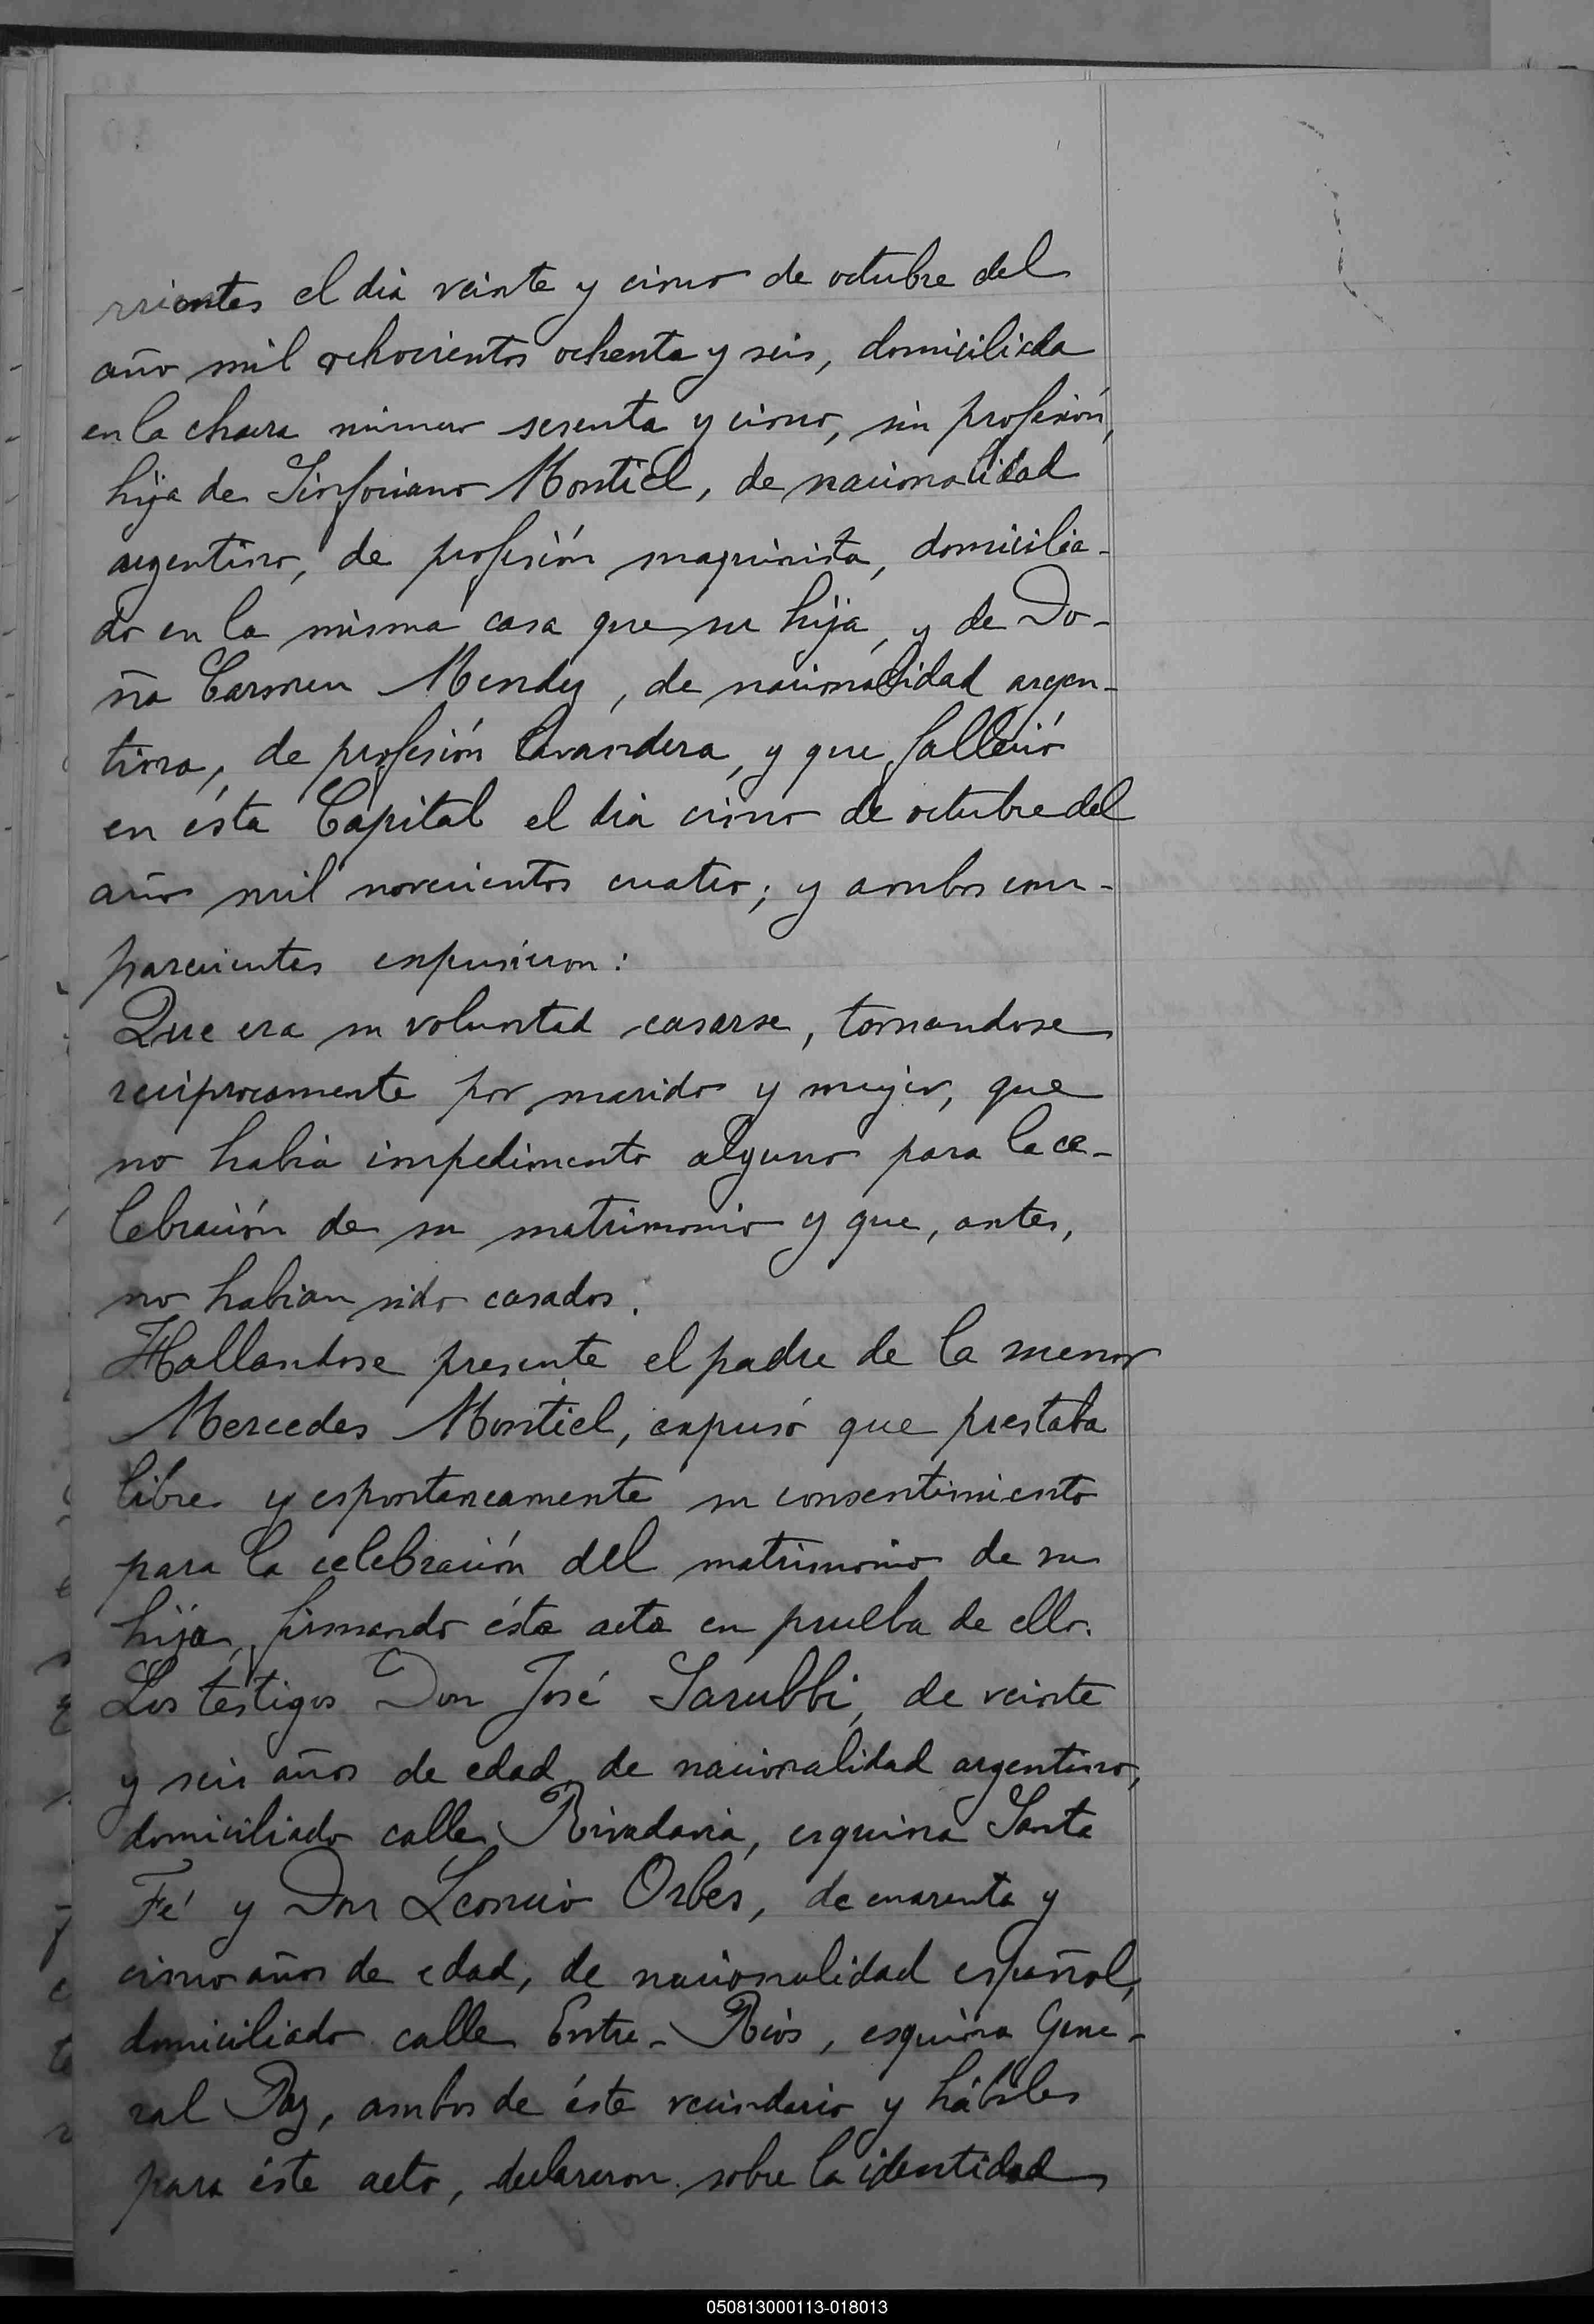 rrientes el dia veinte y cinco de octubre del
año mil ochocientos ochenta y seis, domiciliada
en la chacra número sesenta y cinco, sin profesión,
hija de Sinforiano Montiel, de nacionalidad
argentino, de profesión maquinista, domicilia-
do en la misma casa que su hija, y de Do-
ña Carmen Mendez, de nacionalidad argen-
tina, de profesión lavandera, y que falleció
en ésta Capital el dia cinco de octubre del
año mil novecientos cuatro; y ambos com-
parecientes expusieron:
Que era su voluntad casarse, tomandose
recíprocamente por marido y mujer, que
no habia impedimento alguno para la ce-
lebración de su matrimonio y que, antes,
no habian sido casados.
Hallandose presente el padre de la menor
Mercedes Montiel, expusó que prestaba
libre y espontaneamente su consentimiento
para la celebración del matrimonio de su
hija, firmando ésta acta en prueba de ello.
Los testigos Don José Sarubbi, de veinte
y seis años de edad, de nacionalidad argentino,
domiciliado calle Rivadavia, esquina Santa
Fé y Don Leoncio Orbes, de cuarenta y
cinco años de edad, de nacionalidad español,
domiciliado calle Entre-Rios, esquina Gene-
ral Paz, ambos de éste vecindario y hábiles
para éste acto, declararon sobre la identidad
050813000113-018013